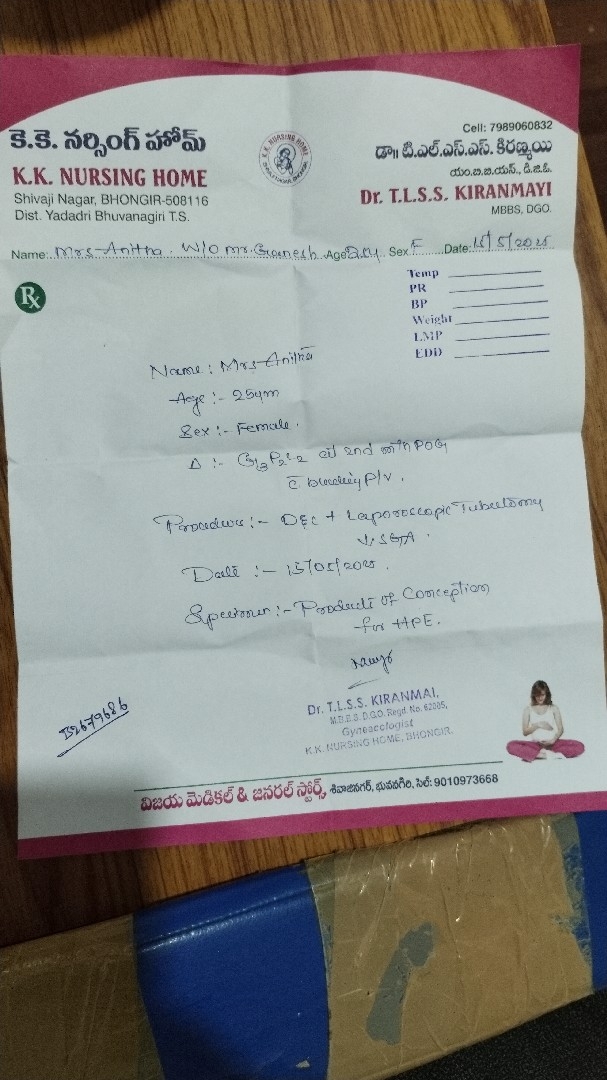 కె.కె. నర్సింగ్ హోమ్
K.K. NURSING HOME
Shivaji Nagar, BHONGIR-508116
Dist. Yadadri Bhuvanagiri T.S.
K.K. NURSING HOME
Cell: 7989060832
డా॥ టి.ఎల్.ఎస్.ఎస్. కిరణ్మయి
యం.బి.బి.యస్., డి.జి.ఓ.
Dr. T.L.S.S. KIRANMAYI
MBBS, DGO.
Name: Mrs Anitha W/o Mr. Ganesh Age 25y Sex F Date: 15/5/2025
Rx
Temp
PR
BP
Weight
LMP
EDD
Name : Mrs Anitha
Age :- 25ym
Sex :- Female.
Δ :- G3P2L2 2nd mth POG
c̄ bleeding P/V.
Procedure :- D&C + Laparoscopic Tubectomy
Date :- 15/05/2025.
Specimen :- Products of Conception
for HPE.
Dr. T.L.S.S. KIRANMAI,
M.B.B.S. D.G.O. Regd. No. 62085,
Gynaecologist
K.K. NURSING HOME, BHONGIR.
B2679686
విజయ మెడికల్ & జనరల్ స్టోర్స్, శివాజీనగర్, భువనగిరి, సెల్: 9010973668